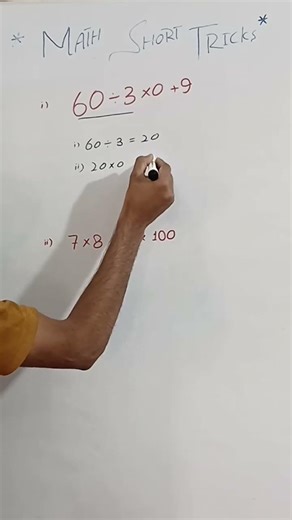 * MATH SHORT TRICKS *
i) 60 ÷ 3 × 0 + 9
i) 60 ÷ 3 = 20
ii) 20 × 0
ii) 7 × 8 × 100